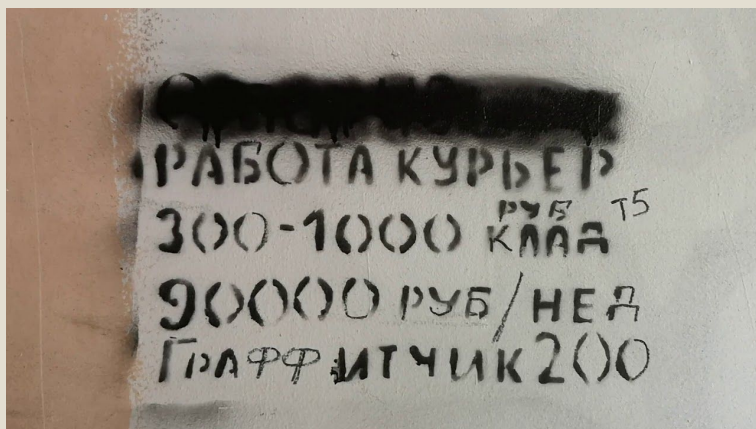 РАБОТА КУРЬЕР
300-1000 РУБ КЛАД Т5
90000 РУБ/НЕД
ГРАФФИТЧИК 200